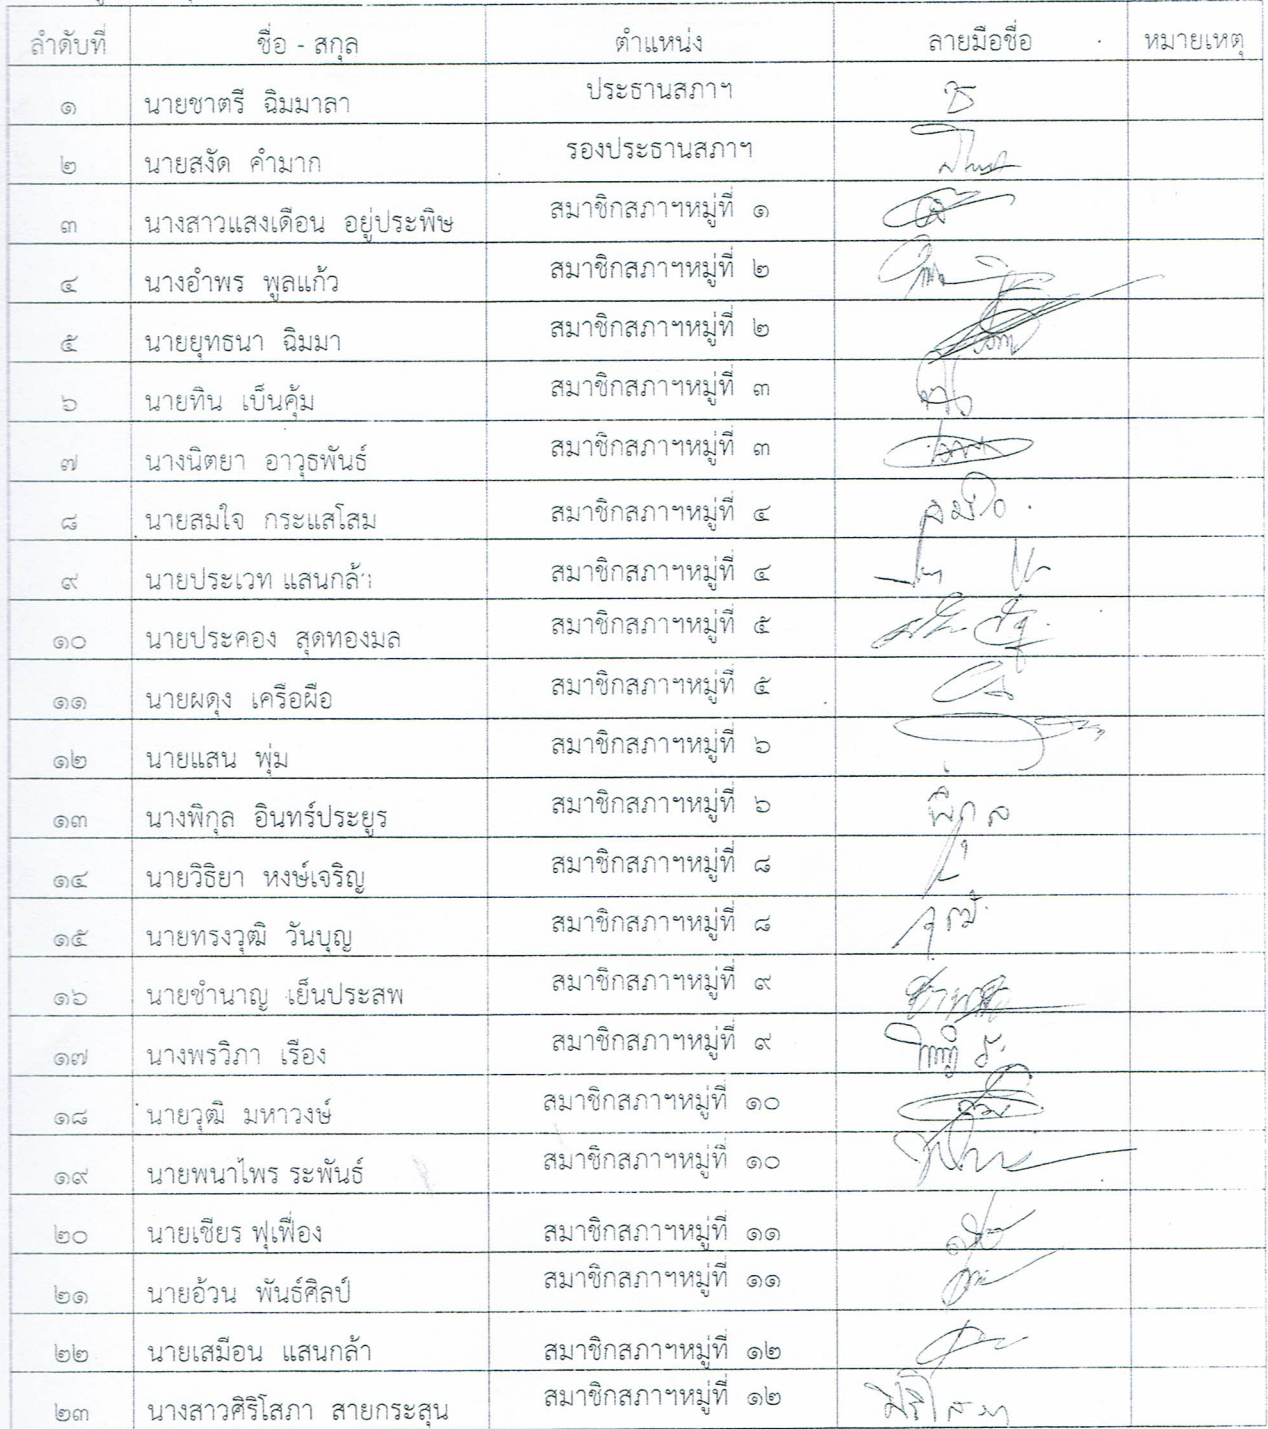 ลำดับที่ ชื่อ - สกุล ตำแหน่ง ลายมือชื่อ หมายเหตุ
๑ นายชาตรี ฉิมมาลา ประธานสภาฯ
๒ นายสงัด คำมาก รองประธานสภาฯ
๓ นางสาวแสงเดือน อยู่ประพิษ สมาชิกสภาฯหมู่ที่ ๑
๔ นางอำพร พูลแก้ว สมาชิกสภาฯหมู่ที่ ๒
๕ นายยุทธนา ฉิมมา สมาชิกสภาฯหมู่ที่ ๒
๖ นายทิน เบ็นคุ้ม สมาชิกสภาฯหมู่ที่ ๓
๗ นางนิตยา อาวุธพันธ์ สมาชิกสภาฯหมู่ที่ ๓
๘ นายสมใจ กระแสโสม สมาชิกสภาฯหมู่ที่ ๔ สมใจ
๙ นายประเวท แสนกล้า สมาชิกสภาฯหมู่ที่ ๔
๑๐ นายประคอง สุดทองมล สมาชิกสภาฯหมู่ที่ ๕
๑๑ นายผดุง เครือผือ สมาชิกสภาฯหมู่ที่ ๕
๑๒ นายแสน พุ่ม สมาชิกสภาฯหมู่ที่ ๖
๑๓ นางพิกุล อินทร์ประยูร สมาชิกสภาฯหมู่ที่ ๖ พิกุล
๑๔ นายวิธิยา หงษ์เจริญ สมาชิกสภาฯหมู่ที่ ๘
๑๕ นายทรงวุฒิ วันบุญ สมาชิกสภาฯหมู่ที่ ๘
๑๖ นายชำนาญ เย็นประสพ สมาชิกสภาฯหมู่ที่ ๙
๑๗ นางพรวิภา เรือง สมาชิกสภาฯหมู่ที่ ๙
๑๘ นายวุฒิ มหาวงษ์ สมาชิกสภาฯหมู่ที่ ๑๐
๑๙ นายพนาไพร ระพันธ์ สมาชิกสภาฯหมู่ที่ ๑๐
๒๐ นายเชียร ฟุเฟื่อง สมาชิกสภาฯหมู่ที่ ๑๑
๒๑ นายอ้วน พันธ์ศิลป์ สมาชิกสภาฯหมู่ที่ ๑๑
๒๒ นายเสมือน แสนกล้า สมาชิกสภาฯหมู่ที่ ๑๒
๒๓ นางสาวศิริโสภา สายกระสุน สมาชิกสภาฯหมู่ที่ ๑๒ ศิริโสภา